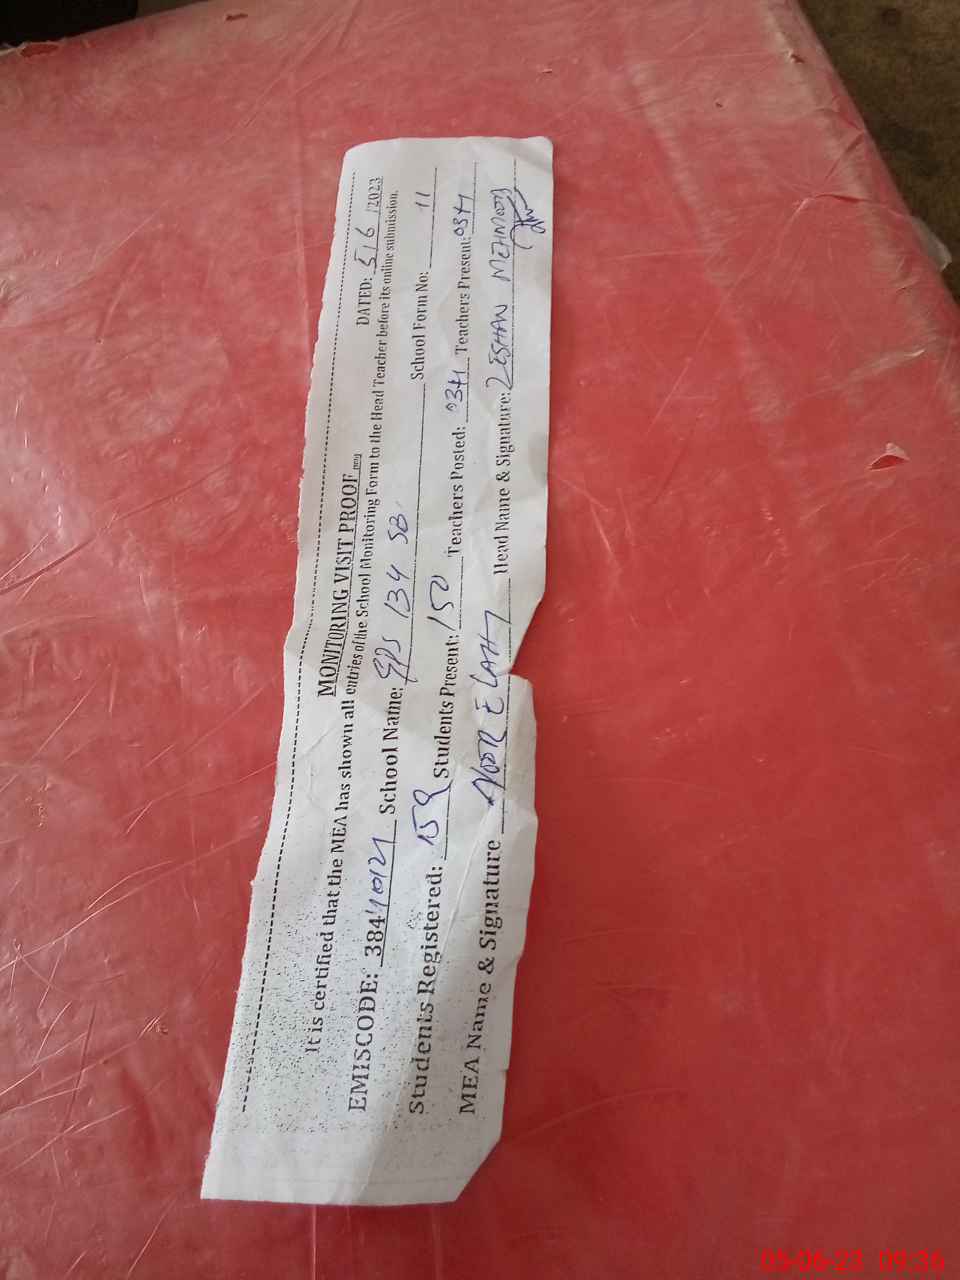 MONITORING VISIT PROOF DATED: 5/6/2023
It is certified that the MEA has shown all entries of the School Monitoring Form to the Head Teacher before its online submission.
EMISCODE: 384 School Name: GPS 134 SB. School Form No: 11
Students Registered: 159 Students Present: 150 Teachers Posted: 03+1 Teachers Present: 03+1
MEA Name & Signature NOOR E LAHI Head Name & Signature: ZESHAN MEHMOOD
05-06-23 09:36